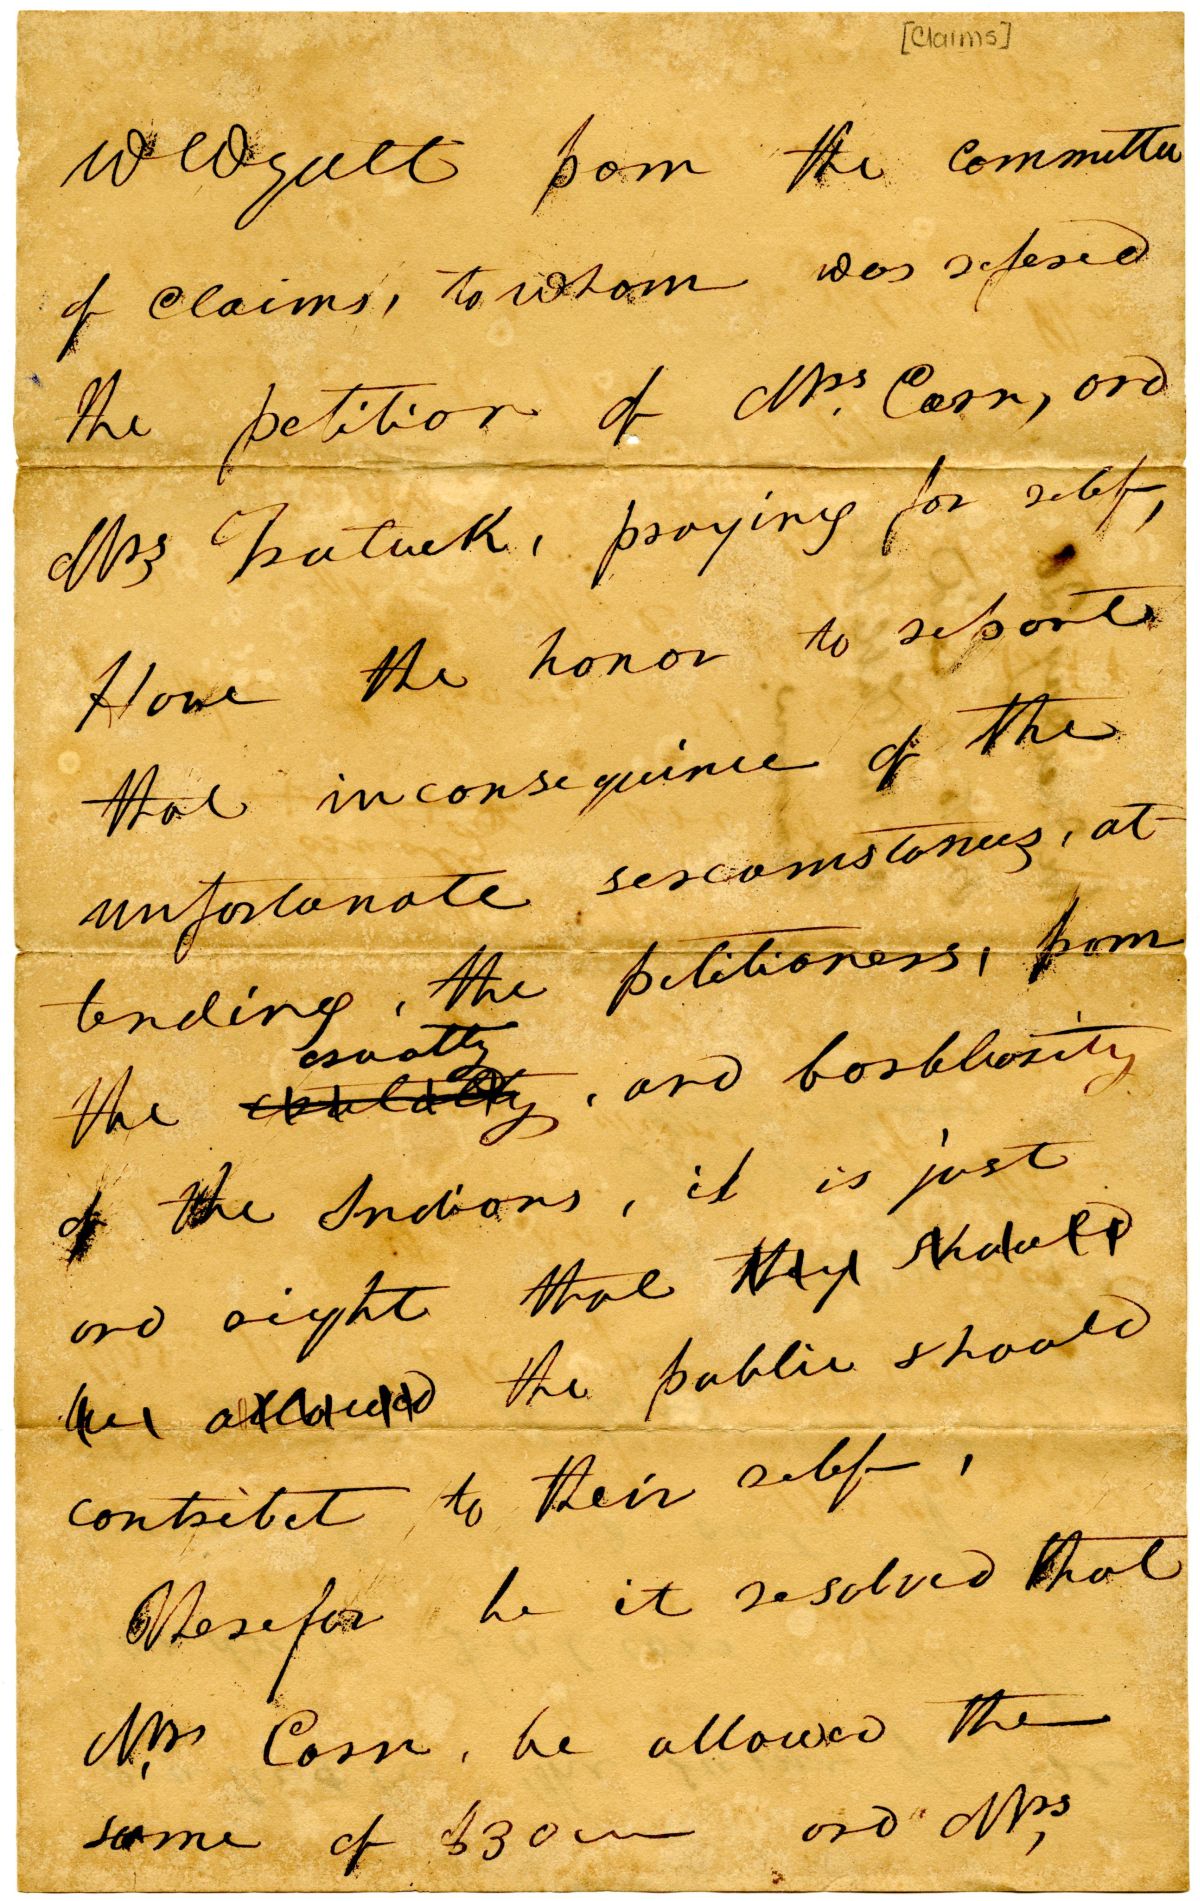 [Claims]
W Wyatt from the committee
of claims, to whom was refered
the petition of Mrs. Carr, and
Mrs praying for relef,
Have the honor to report
that inconsequince of the
unfortanate sercomstances, at
tending, the petitioners, from
crualty
the , and borbliarity
of the Indians, it is just
and right that they should
be allowed the public should
contribet to their relef,
Therefor be it resolved that
Mrs. Carr, be allowed the
some of $30 and Mrs,